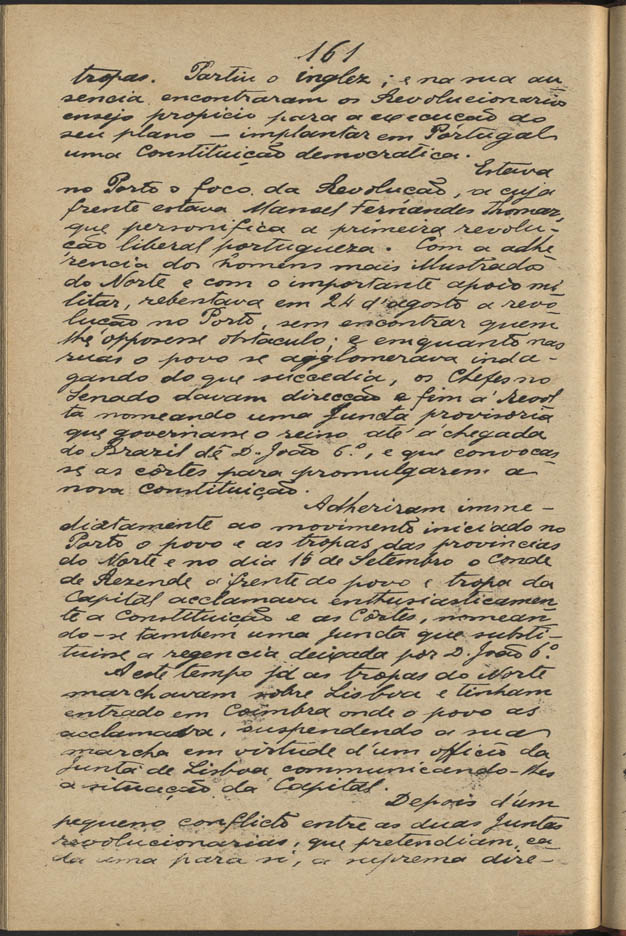 161
tropas. Partiu o inglez; e na sua au
sencia encontraram os Revolucionarios
ensejo propicio para a execução do
seu plano — implantar em Portugal
uma Constituição democratica.
Estava
no Porto o foco da Revolução, a cuja
frente estava Manoel Fernandes Thomaz,
que personifica a primeira revolu-
ção liberal portugueza. Com a adhe
rencia dos homens mais illustrados
do Norte e com o importante apoio mi
litar, rebentava em 24 d'agosto a revo
lução no Porto, sem encontrar quem
lhe oppozesse obstaculo; e emquanto nas
ruas o povo se agglomerava inda-
gando do que succedia, os Chefes no
Senado davam direcção e fim á Revol
ta nomeando uma Juncta provisoria
que governasse o reino até á chegada
do Brazil de D. João 6.º, e que convocas
se as côrtes para promulgarem a
nova constituição.
Adheriram imme-
diatamente ao movimento iniciado no
Porto o povo e as tropas das provincias
do Norte e no dia 15 de Setembro o Conde
de Rezende á frente do povo e tropa da
Capital acclamava enthusiasticamen
te a Constituição e as Côrtes, nomean
do-se tambem uma Junta que substi-
tuisse a regencia deixada por D. João 6.º
A este tempo já as tropas do Norte
marchavam sobre Lisboa e tinham
entrado em Coimbra onde o povo as
acclamava, suspendendo a sua
marcha em virtude d'um officio da
Junta de Lisboa communicando-lhes
a situação da Capital.
Depois d'um
pequeno conflicto entre as duas Juntas
revolucionarias, que pretendiam, ca
da uma para si, a suprema dire-